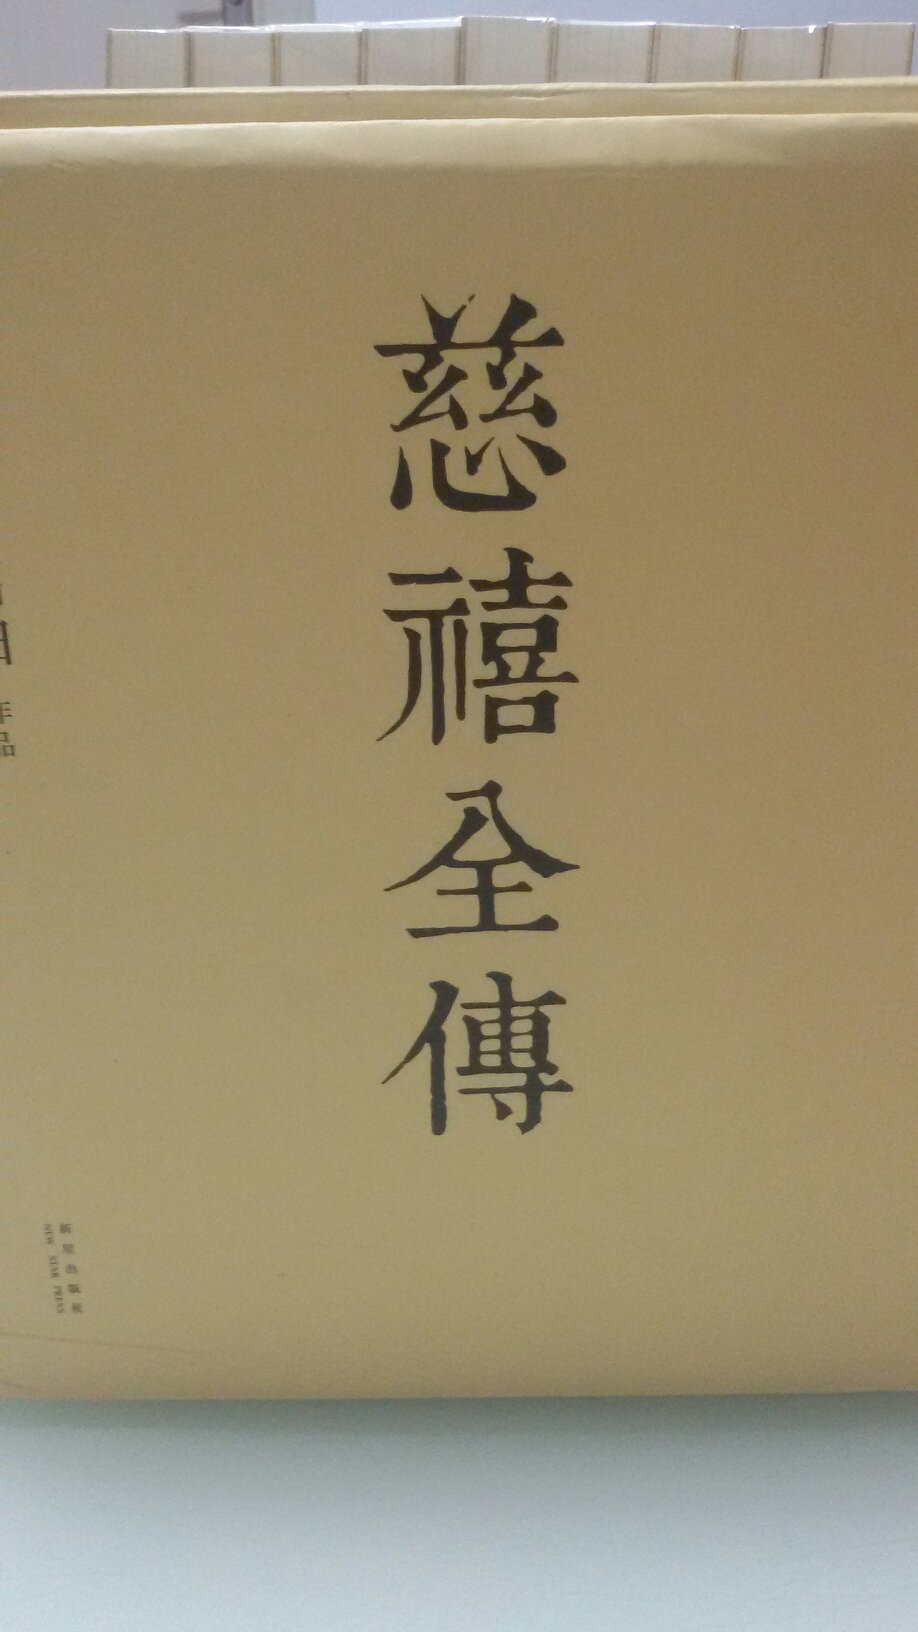 慈禧全傳
作品
新星出版社
NEW STAR PRESS